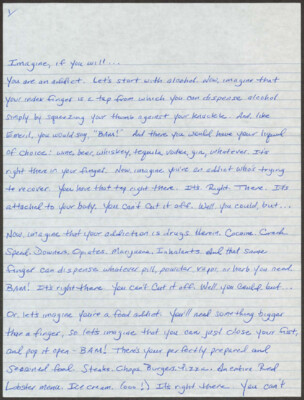 1/
Imagine, if you will...
You are an addict. Let's start with alcohol. Now, imagine that
your index finger is a tap from which you can dispense alcohol
simply by squeezing your thumb against your knuckle. And like
Emeril, you would say, "BAM!" And there you would have your liquid
of choice: wine, beer, whiskey, tequila, vodka, gin, whatever. It's
right there in your finger. Now imagine you're an addict when trying
to recover. You have that tap right there. It's. Right. There. It's
attached to your body. You can't cut it off. Well you could, but...
Now, imagine that your addiction is drugs. Heroin. Cocaine. Crack.
Speed. Downers. Opiates. Marijuana. Inhalants. And that same
finger can dispense whatever pill, powder, vapor, or herb you need.
BAM! It's right there. You can't cut it off. Well you could but...
Or, let's imagine you're a food addict. You'll need something bigger
than a finger, so let's imagine that you can just close your fist,
and pop it open - BAM! There's your perfectly prepared and
seasoned food. Steaks. Chops. Burgers. Pizza. An entire Red
Lobster menu. Ice cream. It's right there. You can't